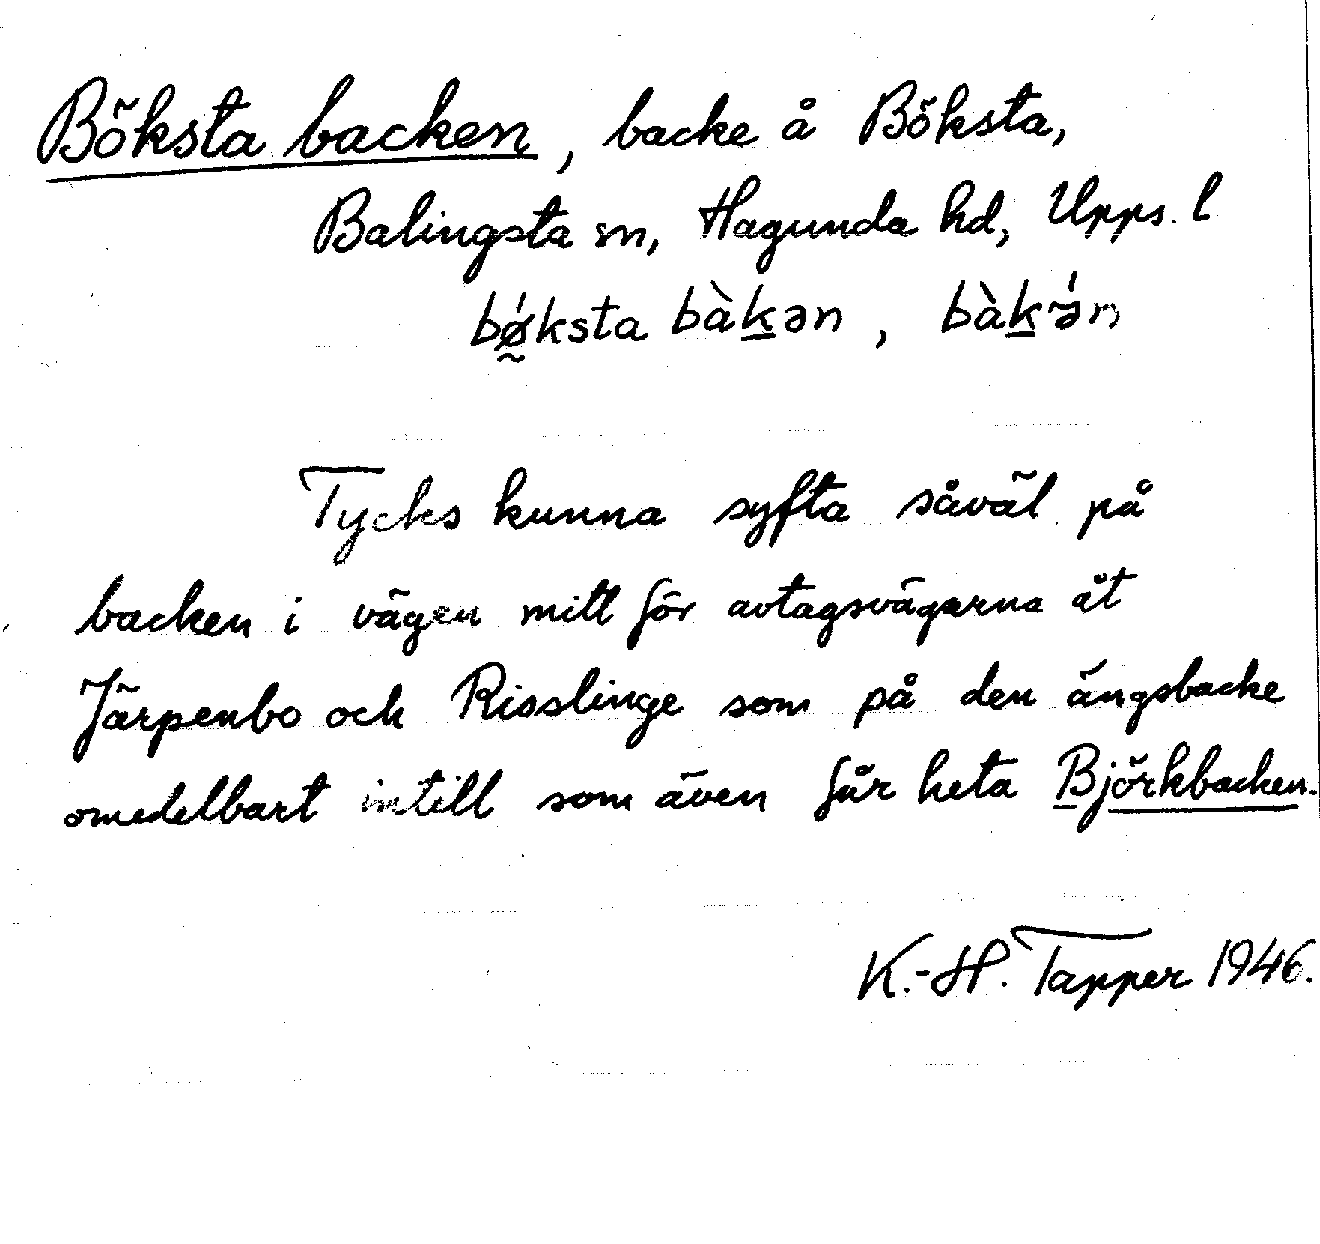 Böksta backen, backe å Böksta,
Balingsta sn, Hagunda hd, Upps. l
bǿ̰ksta bàḵən, bàḵə̃́n
Tycks kunna syfta såväl på
backen i vägen mitt för avtagsvägarna åt
Järpenbo och Risslinge som på den ängsbacke
omedelbart intill som även får heta Björkbacken.
K.-H. Tapper 1946.